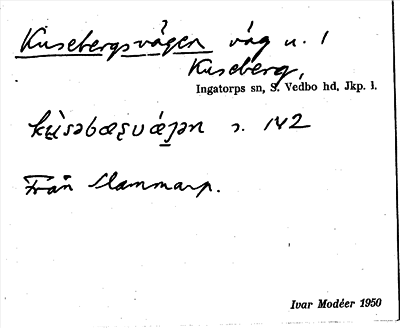 Kusebergsvägen väg u. 1
Kuseberg,
Ingatorps sn, S. Vedbo hd, Jkp. l.
s. 142
Från Slammarp.
Ivar Modéer 1950